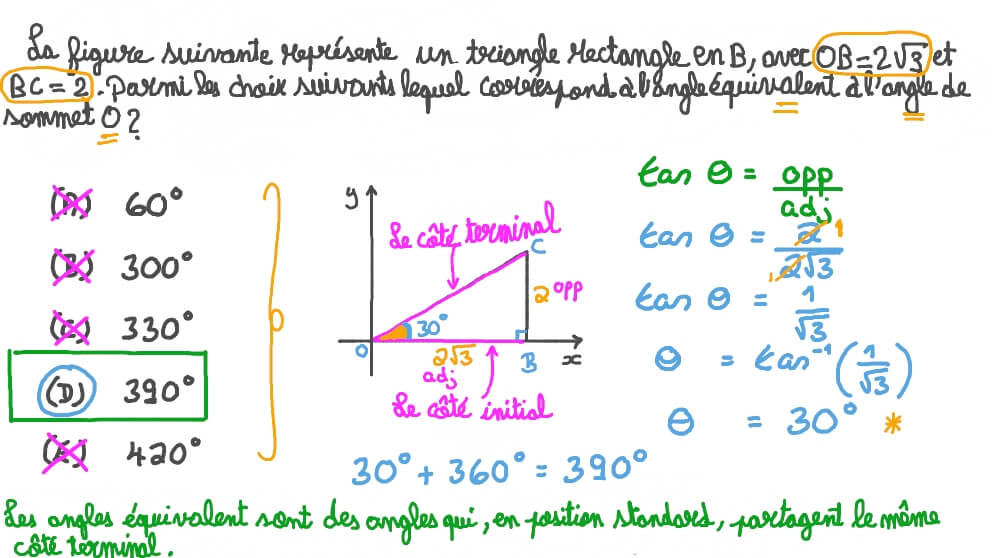 La figure suivante représente un triangle rectangle en B, avec OB = 2√3 et
BC = 2. Parmi les choix suivants lequel correspond à l'angle équivalent à l'angle de
sommet O ?
(A) 60°
(B) 300°
(C) 330°
(D) 390°
(E) 420°
y
Le côté terminal
C
2 opp
30°
O
2√3
B
x
adj
Le côté initial
30° + 360° = 390°
tan θ = opp/adj
tan θ = 2/2√3
1
1
tan θ = 1/√3
θ = tan⁻¹(1/√3)
θ = 30° *
Les angles équivalent sont des angles qui, en position standard, partagent le même
côté terminal.